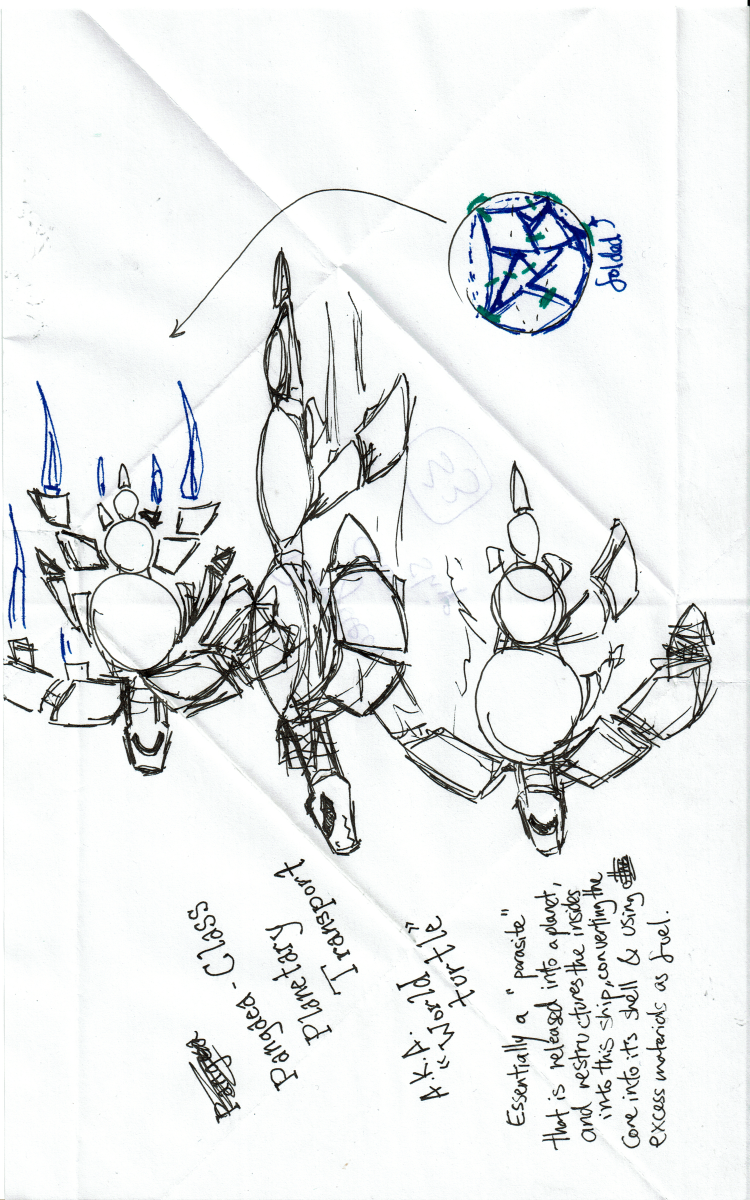 folded
Pangaea
Pangaea - Class
Planetary
Transport
A.K.A.
"World
turtle"
Essentially a "parasite"
that is released into a planet,
and restructures the insides
into this ship, converting the
core into its shell & using
excess materials as fuel.